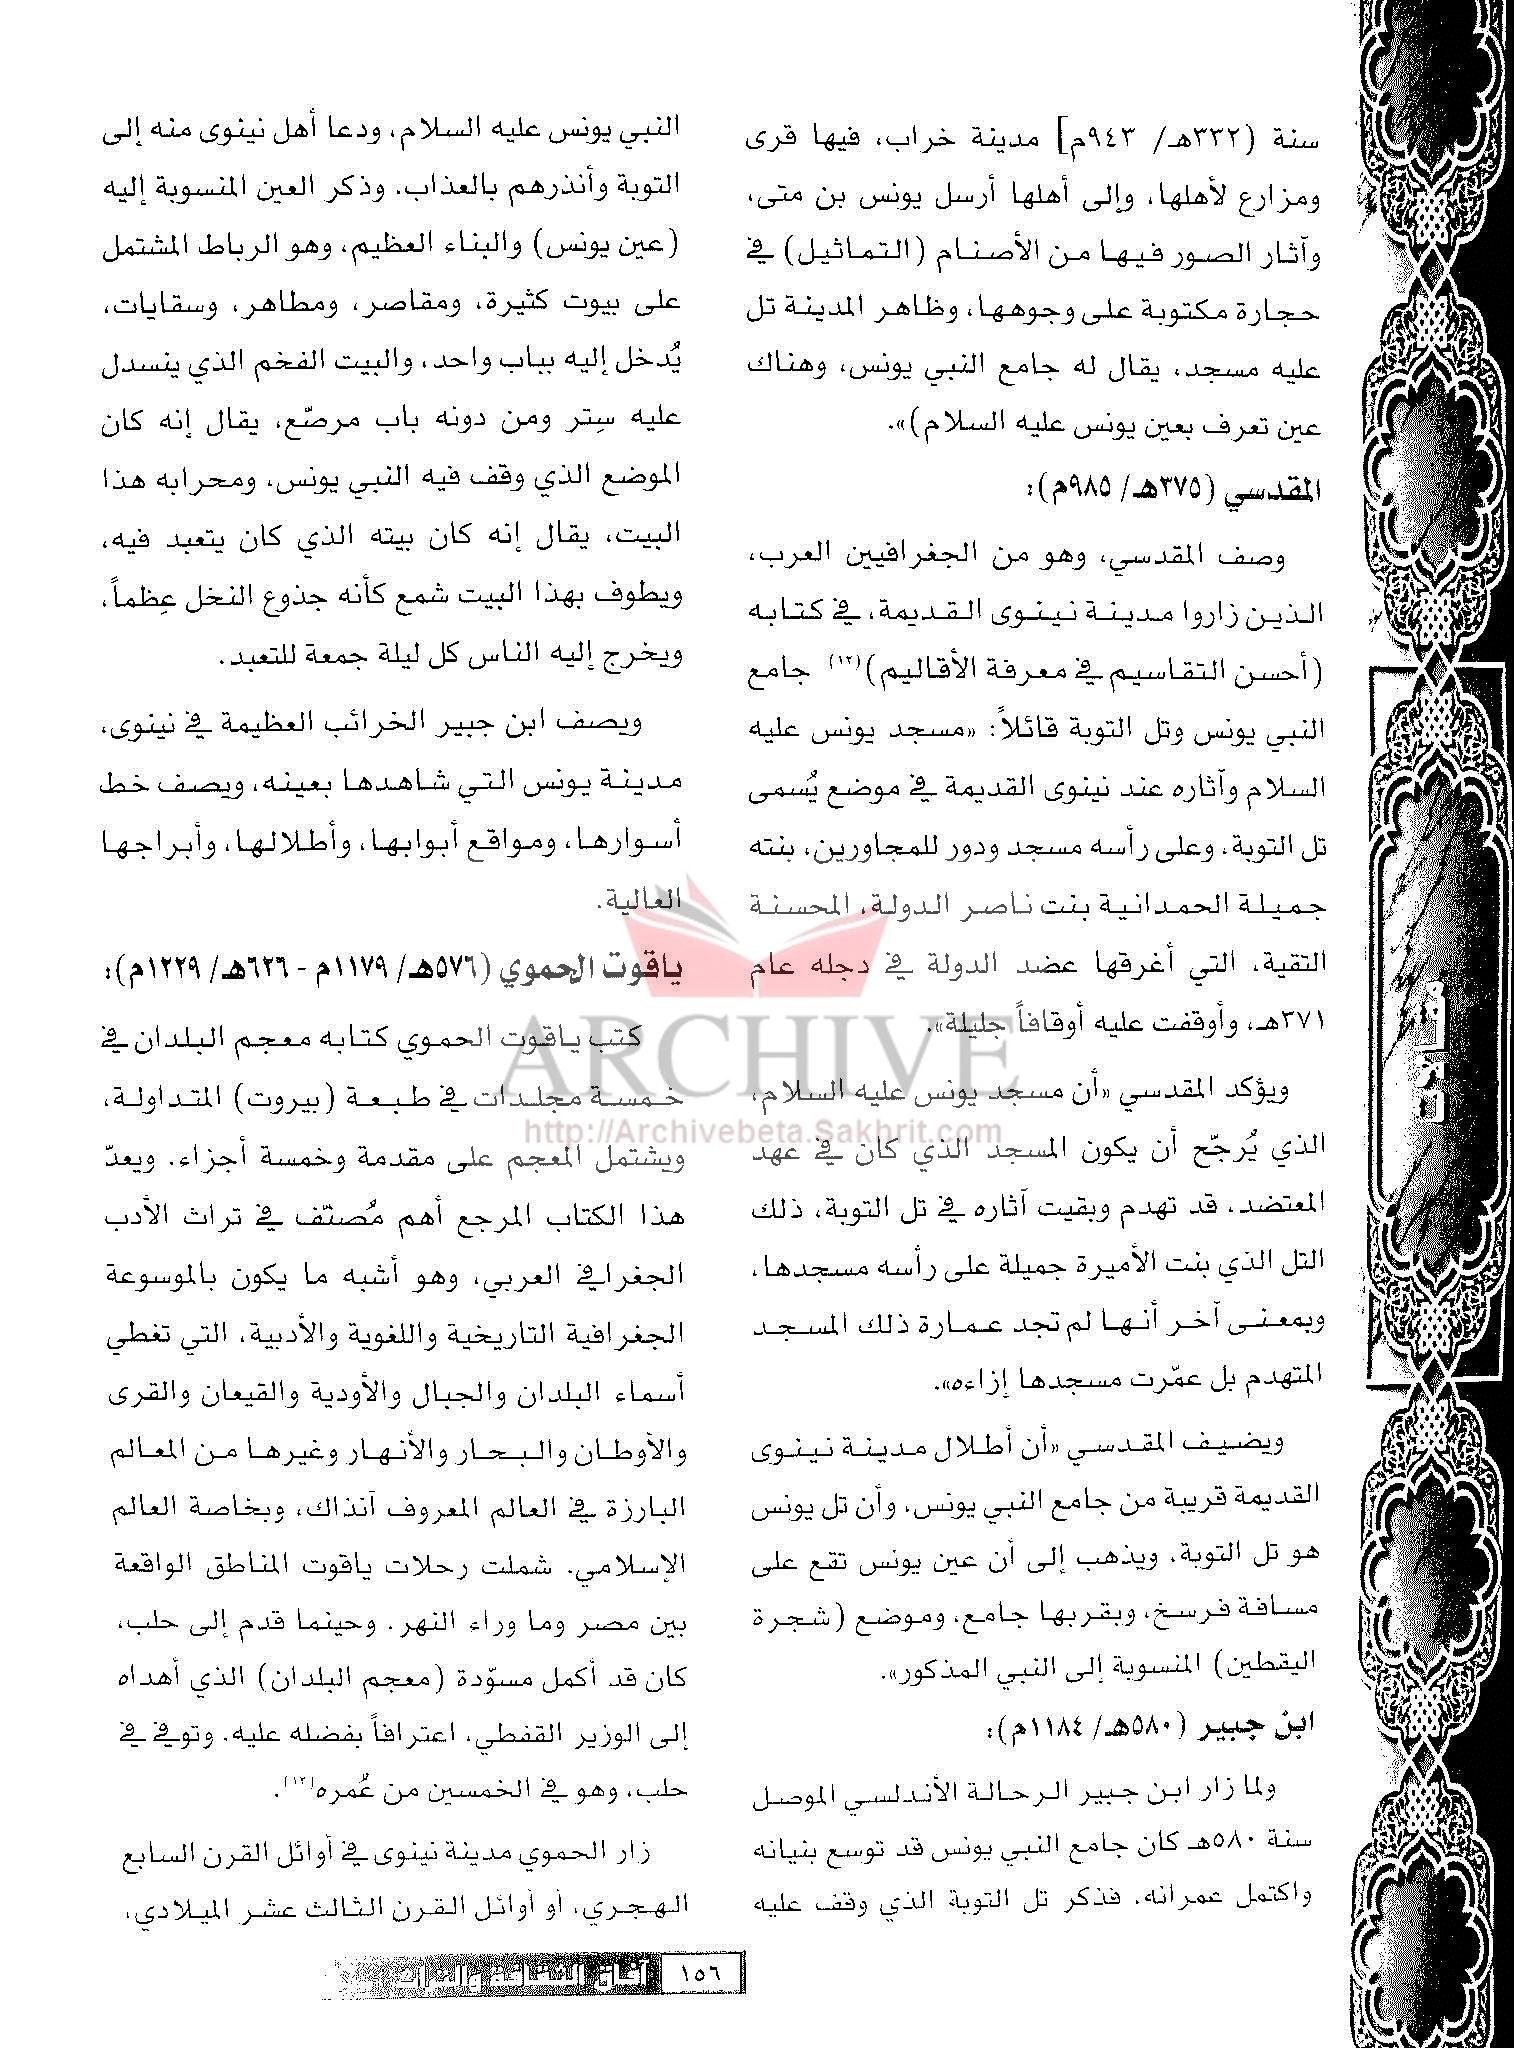 سنة (٣٣٢هـ/ ٩٤٣م] مدينة خراب، فيها قرى
ومزارع لأهلها، وإلى أهلها أرسل يونس بن متى،
وآثار الصور فيها من الأصنام (التماثيل) في
حجارة مكتوبة على وجوهها، وظاهر المدينة تل
عليه مسجد، يقال له جامع النبي يونس، وهناك
عين تعرف بعين يونس عليه السلام)».
المقدسي (٣٧٥هـ/ ٩٨٥م):
وصف المقدسي، وهو من الجغرافيين العرب،
الذين زاروا مدينة نينوى القديمة، في كتابه
(أحسن التقاسيم في معرفة الأقاليم)(١٢) جامع
النبي يونس وتل التوبة قائلاً: «مسجد يونس عليه
السلام وآثاره عند نينوى القديمة في موضع يُسمى
تل التوبة، وعلى رأسه مسجد ودور للمجاورين، بنته
جميلة الحمدانية بنت ناصر الدولة، المحسنة
التقية، التي أغرقها عضد الدولة في دجله عام
٣٧١هـ، وأوقفت عليه أوقافاً جليلة».
ويؤكد المقدسي «أن مسجد يونس عليه السلام،
الذي يُرجّح أن يكون المسجد الذي كان في عهد
المعتضد، قد تهدم وبقيت آثاره في تل التوبة، ذلك
التل الذي بنت الأميرة جميلة على رأسه مسجدها،
وبمعنى آخر أنها لم تجد عمارة ذلك المسجد
المتهدم بل عمّرت مسجدها إزاءه».
ويضيف المقدسي «أن أطلال مدينة نينوى
القديمة قريبة من جامع النبي يونس، وأن تل يونس
هو تل التوبة، ويذهب إلى أن عين يونس تقع على
مسافة فرسخ، وبقربها جامع، وموضع (شجرة
اليقطين) المنسوبة إلى النبي المذكور».
ابن جبير (٥٨٠هـ/ ١١٨٤م):
ولما زار ابن جبير الرحالة الأندلسي الموصل
سنة ٥٨٠هـ كان جامع النبي يونس قد توسع بنيانه
واكتمل عمرانه، فذكر تل التوبة الذي وقف عليه
النبي يونس عليه السلام، ودعا أهل نينوى منه إلى
التوبة وأنذرهم بالعذاب. وذكر العين المنسوبة إليه
(عين يونس) والبناء العظيم، وهو الرباط المشتمل
على بيوت كثيرة، ومقاصر، ومطاهر، وسقايات،
يُدخل إليه بباب واحد، والبيت الفخم الذي ينسدل
عليه سِتر ومن دونه باب مرصّع، يقال إنه كان
الموضع الذي وقف فيه النبي يونس، ومحرابه هذا
البيت، يقال إنه كان بيته الذي كان يتعبد فيه،
ويطوف بهذا البيت شمع كأنه جذوع النخل عِظماً،
ويخرج إليه الناس كل ليلة جمعة للتعبد.
ويصف ابن جبير الخرائب العظيمة في نينوى،
مدينة يونس التي شاهدها بعينه، ويصف خط
أسوارها، ومواقع أبوابها، وأطلالها، وأبراجها
العالية.
ياقوت الحموي (٥٧٦هـ/ ١١٧٩م - ٦٢٦هـ/ ١٢٢٩م):
كتب ياقوت الحموي كتابه معجم البلدان في
خمسة مجلدات في طبعة (بيروت) المتداولة،
ويشتمل المعجم على مقدمة وخمسة أجزاء. ويعدّ
هذا الكتاب المرجع أهم مُصنّف في تراث الأدب
الجغرافي العربي، وهو أشبه ما يكون بالموسوعة
الجغرافية التاريخية واللغوية والأدبية، التي تغطي
أسماء البلدان والجبال والأودية والقيعان والقرى
والأوطان والبحار والأنهار وغيرها من المعالم
البارزة في العالم المعروف آنذاك، وبخاصة العالم
الإسلامي. شملت رحلات ياقوت المناطق الواقعة
بين مصر وما وراء النهر. وحينما قدم إلى حلب،
كان قد أكمل مسوّدة (معجم البلدان) الذي أهداه
إلى الوزير القفطي، اعترافاً بفضله عليه. وتوفي في
حلب، وهو في الخمسين من عُمره(١٣).
زار الحموي مدينة نينوى في أوائل القرن السابع
الهجري، أو أوائل القرن الثالث عشر الميلادي،
مقالات
ARCHIVE
http://Archivebeta.Sakhrit.com
١٥٦ آفاق الثقافة والتراث